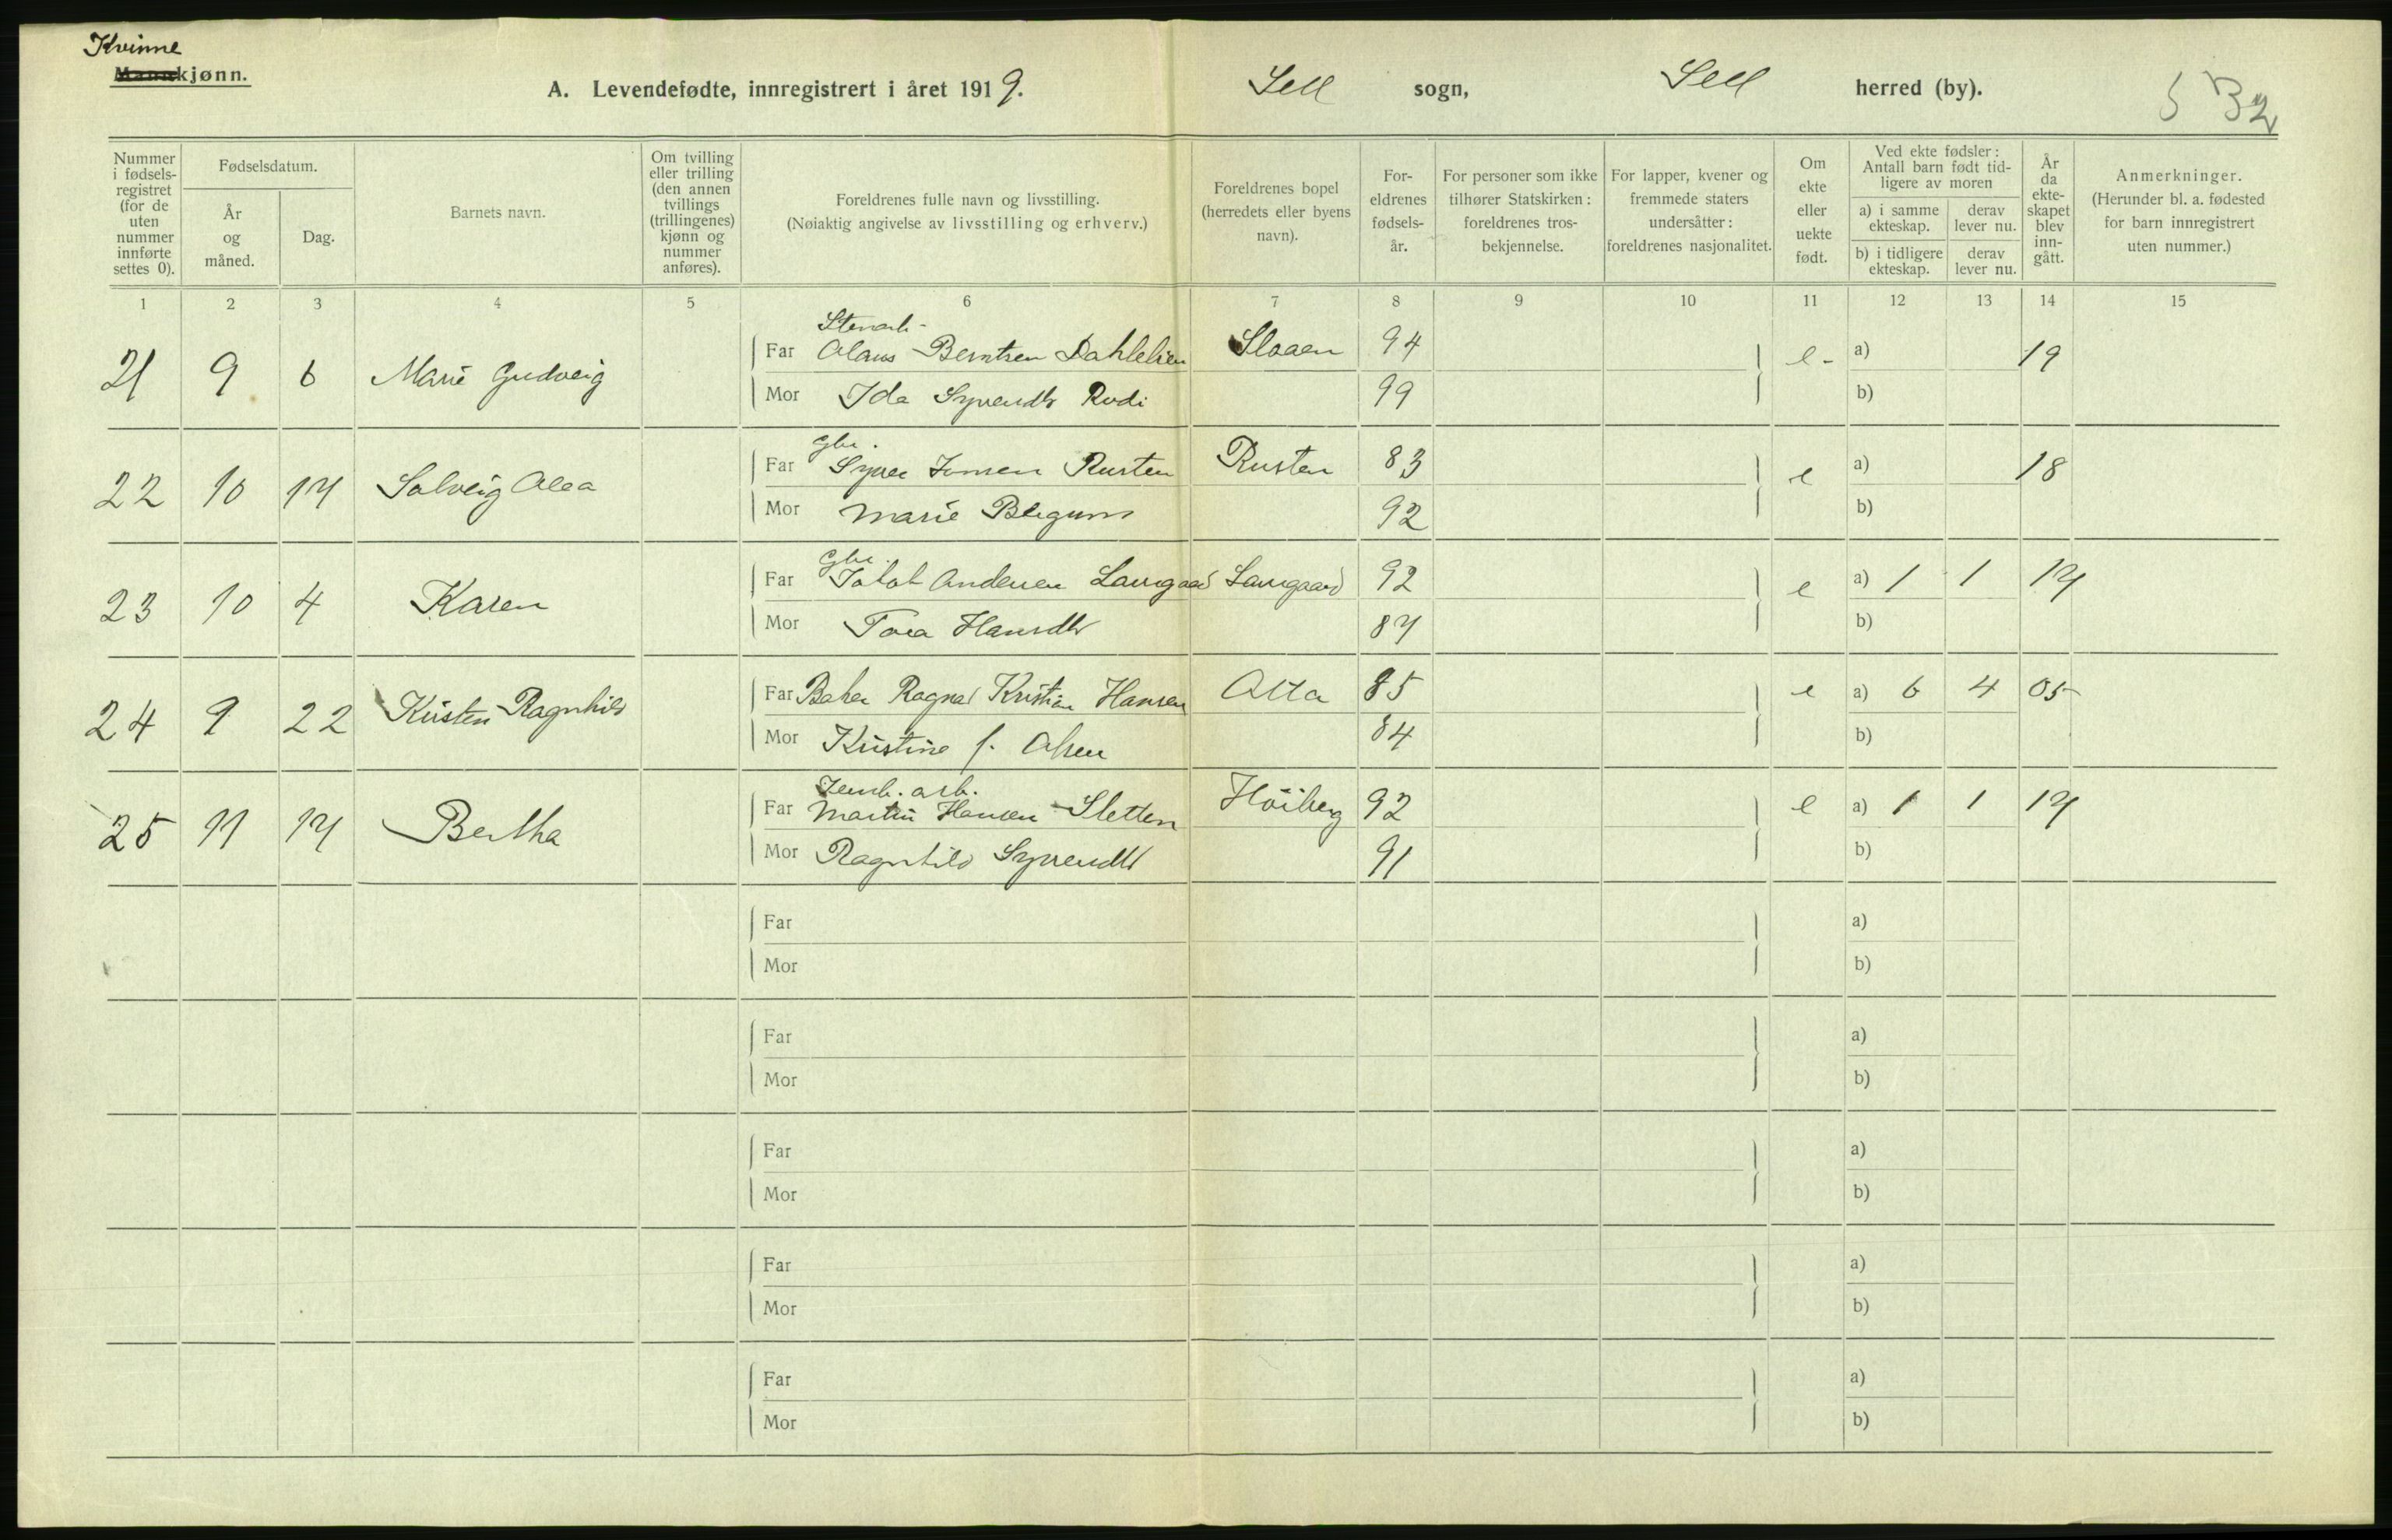 Kvinne
Mannkjønn.
A. Levendefødte, innregistrert i året 1919.
Sell sogn, Sell herred (by).
532
Nummer i fødsels-registret (for de uten nummer innførte settes 0).
Fødselsdatum.
År og måned.
Dag.
Barnets navn.
Om tvilling eller trilling (den annen tvillings (trillingenes) kjønn og nummer anføres).
Foreldrenes fulle navn og livsstilling.
(Nøiaktig angivelse av livsstilling og erhverv.)
Foreldrenes bopel (herredets eller byens navn).
For-eldrenes fødsels-år.
For personer som ikke tilhører Statskirken: foreldrenes tros-bekjennelse.
For lapper, kvener og fremmede staters undersåtter: foreldrenes nasjonalitet.
Om ekte eller uekte født.
Ved ekte fødsler: Antall barn født tid-ligere av moren
a) i samme ekteskap.
derav lever nu.
b) i tidligere ekteskap.
derav lever nu.
År da ekte-skapet blev inn-gått.
Anmerkninger.
(Herunder bl. a. fødested for barn innregistrert uten nummer.)
1 2 3 4 5 6 7 8 9 10 11 12 13 14 15
Stenarb.
21 9 6 Marie Gudveig Far Olaus Berntsen Dahlelien Slaaen 94 e- a) 19
Mor Ida Syversdtr Rudi 99 b)
Gbr.
22 10 17 Solveig Alea Far Syver Jonsen Rusten Rusten 83 e a) 18
Mor Marie Blegum 92 b)
Gbr.
23 10 4 Karen Far Jakob Andersen Laurgaard Laurgaard 92 e a) 1 1 17
Mor Tora Hansdtr 87 b)
24 9 22 Kirsten Ragnhild Far Baker Ragnar Kristian Hansen Otta 85 e a) 6 4 05
Mor Kristine f. Olsen 84 b)
Jernb. arb.
25 11 17 Bertha Far Martin Hansen Sletten Höiberg 92 e a) 1 1 17
Mor Ragnhild Syversdtr 91 b)
Far a)
Mor b)
Far a)
Mor b)
Far a)
Mor b)
Far a)
Mor b)
Far a)
Mor b)